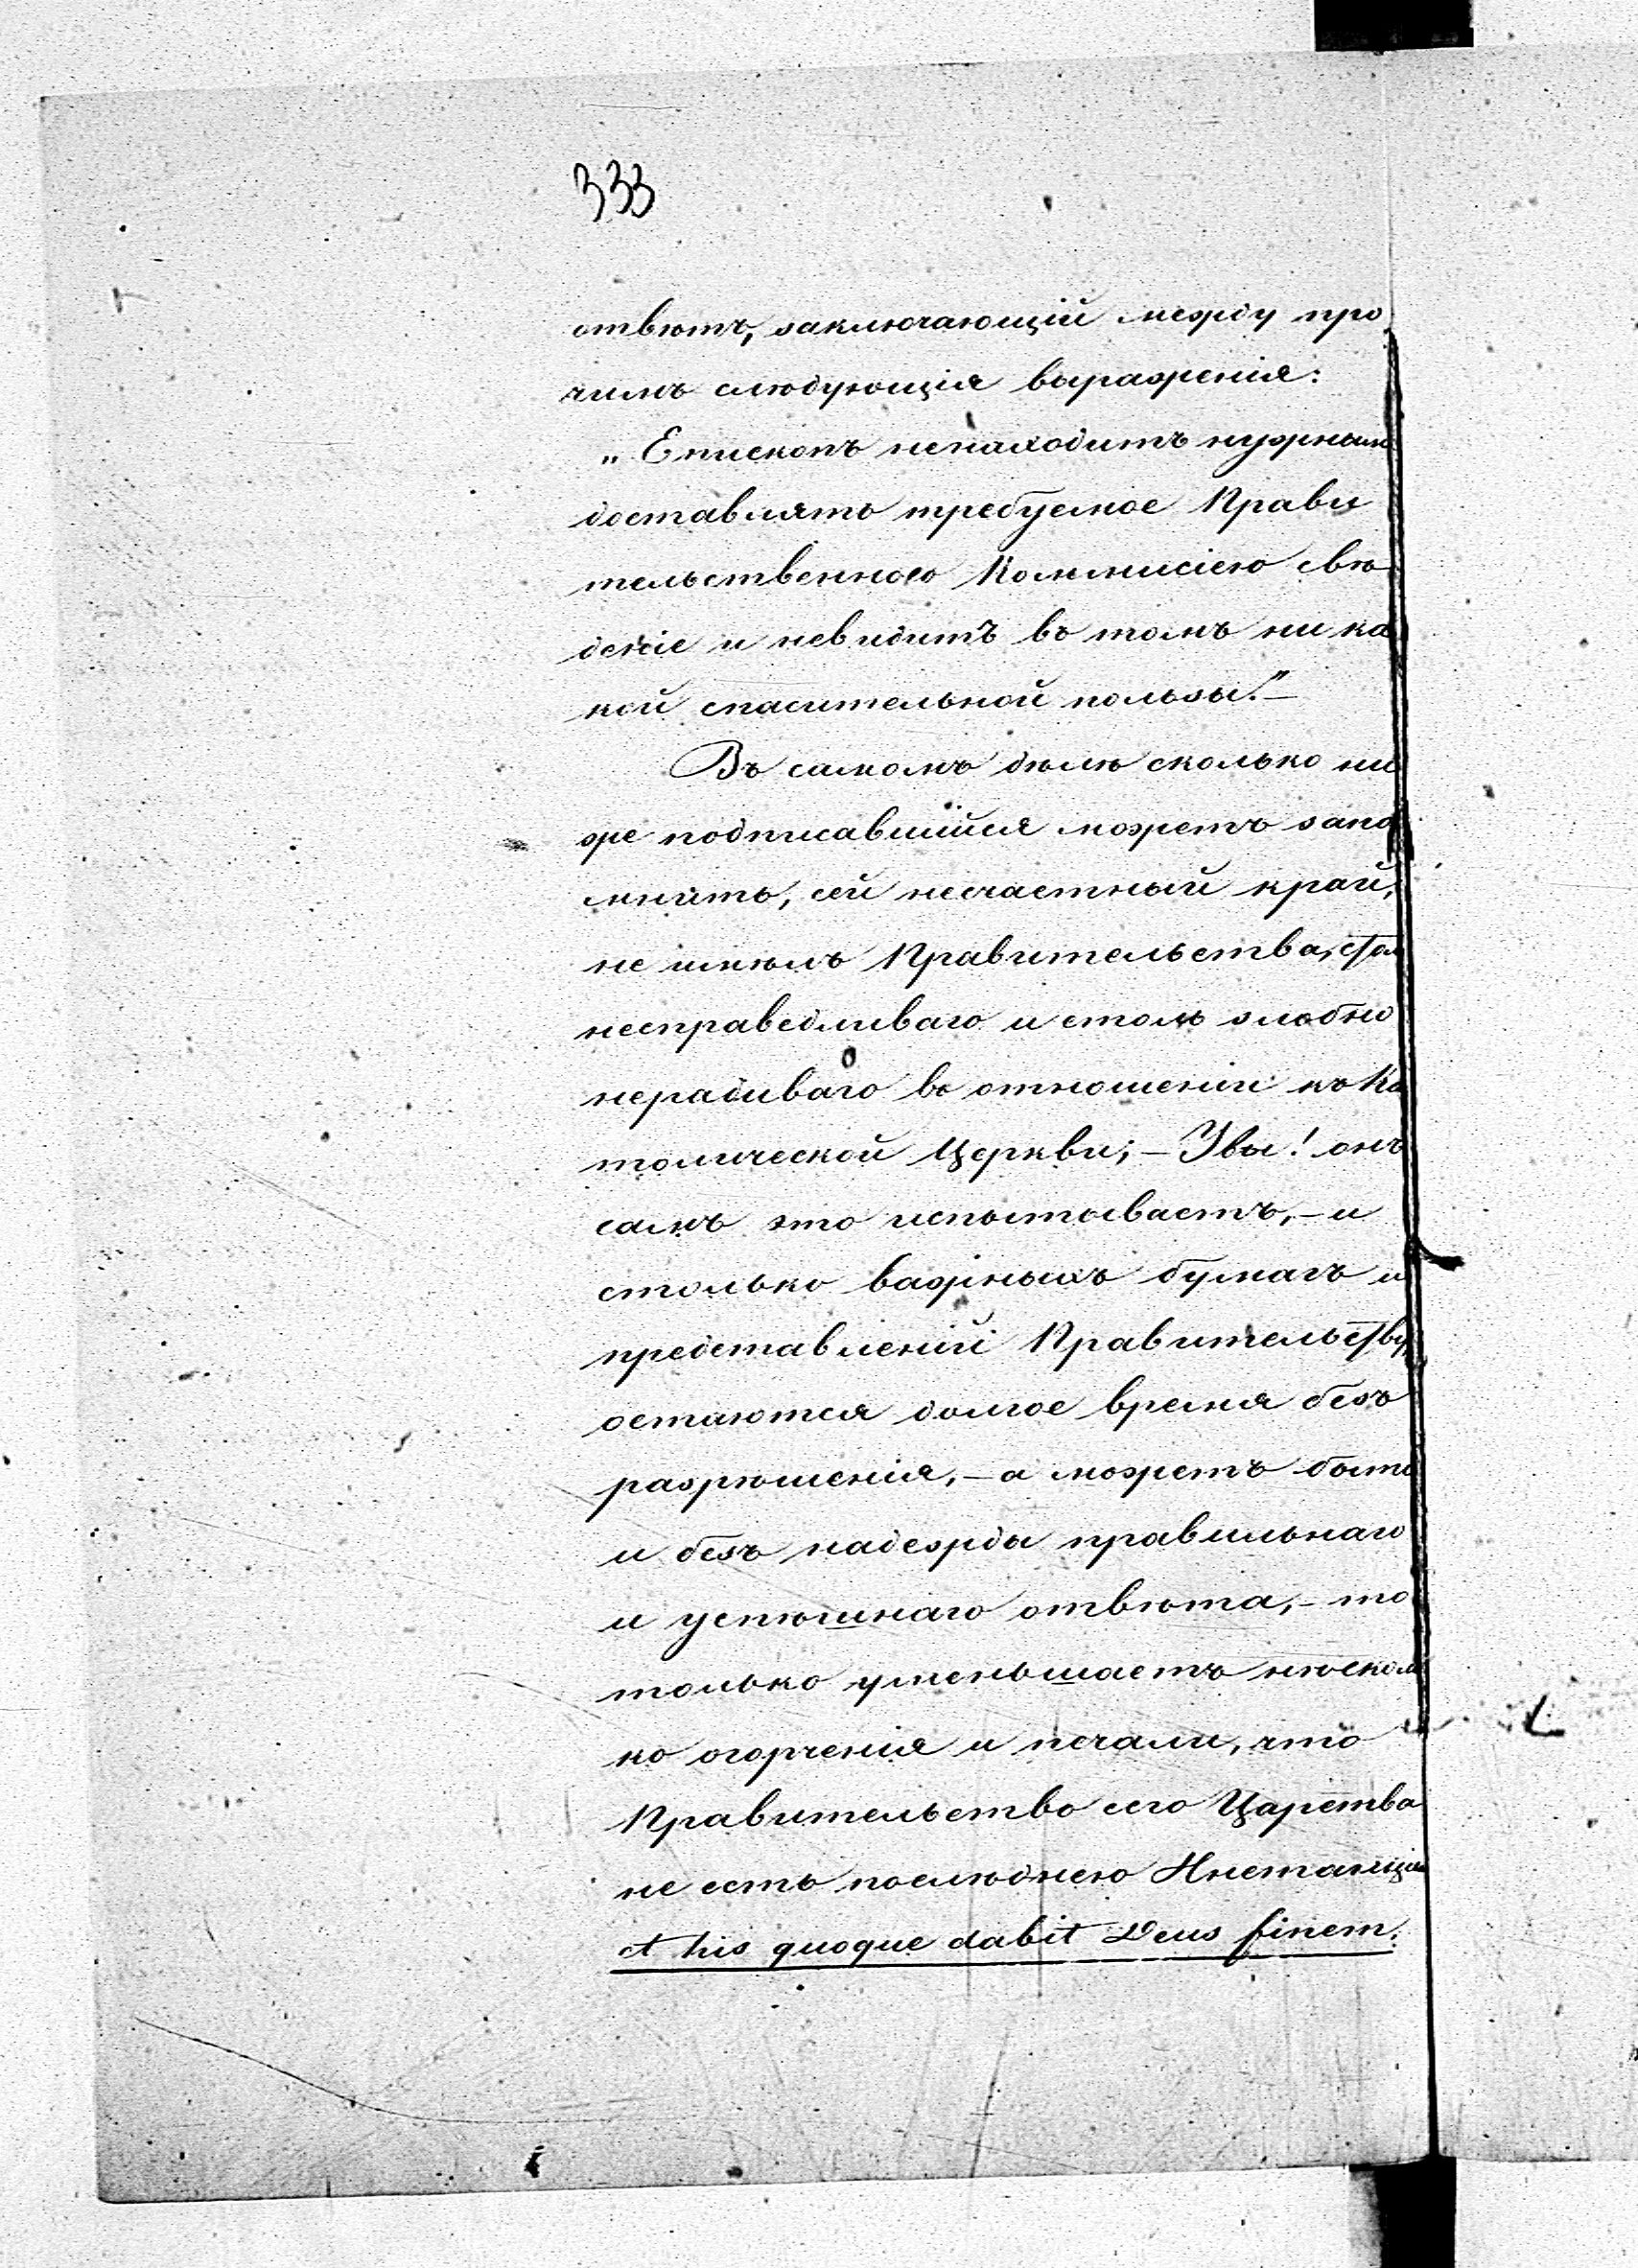 333
отвѣтъ, заключающій между про
чимъ слѣдующія выраженія:
„Епископъ ненаходитъ нужнымъ
доставлять требуемое Прави
тельственною Коммисіею свѣ
деніе и невидитъ въ томъ ни ка
кой спасительной пользы."—
Въ самомъ дѣлѣ сколько ни
же подписавшійся можетъ запо
мнить, сей несчастный край,
не имѣлъ Правительства, столь
несправедливаго и столь злобно
нерадиваго въ отношеніи къ Ка
толической Церкви; – Увы! онъ
самъ это испытываетъ, – и
столько важныхъ бумагъ и
представленій Правительству,
остаются долгое время безъ
разрѣшенія, – а можетъ быть
и безъ надежды правильнаго
и успѣшнаго отвѣта, – то
только уменьшаетъ нѣсколь
ко огорченія и печали, что
Правительство сего Царства
не есть послѣднею Инстанціею
et his quoque dabit Deus finem.